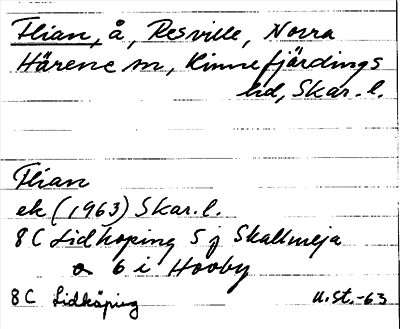 Flian, å, Resville, Norra
Härene sn, Kinnefjärdings
hd, Skar. l.
Flian
ek (1963) Skar. l.
8C Lidköping 5 j Skallmeja
o 6 i Hovby
8C Lidköping u.st.-63